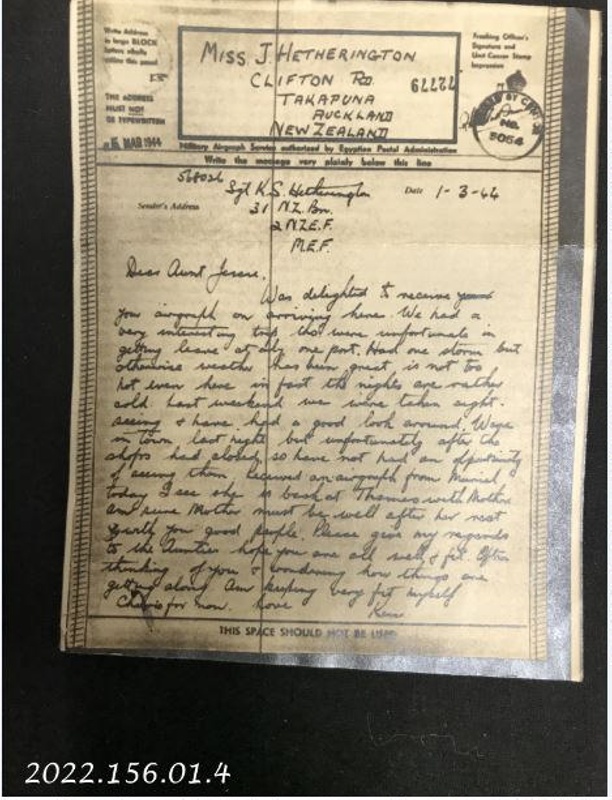 Write Address
in large BLOCK
letters wholly
within this panel
THE ADDRESS
MUST NOT
BE TYPEWRITTEN
15 MAR 1944
MISS J HETHERINGTON
CLIFTON RD.
TAKAPUNA
AUCKLAND
NEW ZEALAND
72779
Franking Officer's
Signature and
Unit Censor Stamp
Impression
PASSED BY CENSOR
No.
5054
Military Airgraph Service authorized by Egyptian Postal Administration
Write the message very plainly below this line
568026
Sender's Address
Sgt K.S. Hetherington
31 N.Z. Bn.
2 N.Z.E.F.
M.E.F.
Date 1-3-44
Dear Aunt Jessie,
Was delighted to receive
your airgraph on arriving here. We had a
very interesting trip tho were unfortunate in
getting leave at only one port. Had one storm but
otherwise weather has been great, is not too
hot even here in fact the nights are rather
cold. Last weekend we were taken sight-
seeing & have had a good look around. Were
in town last night but unfortunately after the
shops had closed so have not had an opportunity
of seeing them. Received an airgraph from Muriel
today I see she is back at Thames with Mother
am sure Mother must be well after her rest
with you good people. Please give my regards
to the Aunties hope you are all well & fit. Often
thinking of you & wondering how things are
getting along. Am keeping very fit myself
Cheerio for now. Love
Ken
THIS SPACE SHOULD NOT BE USED
2022.156.01.4